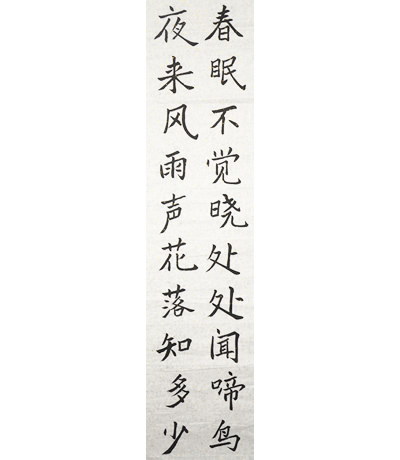 春眠不觉晓处处闻啼鸟
夜来风雨声花落知多少